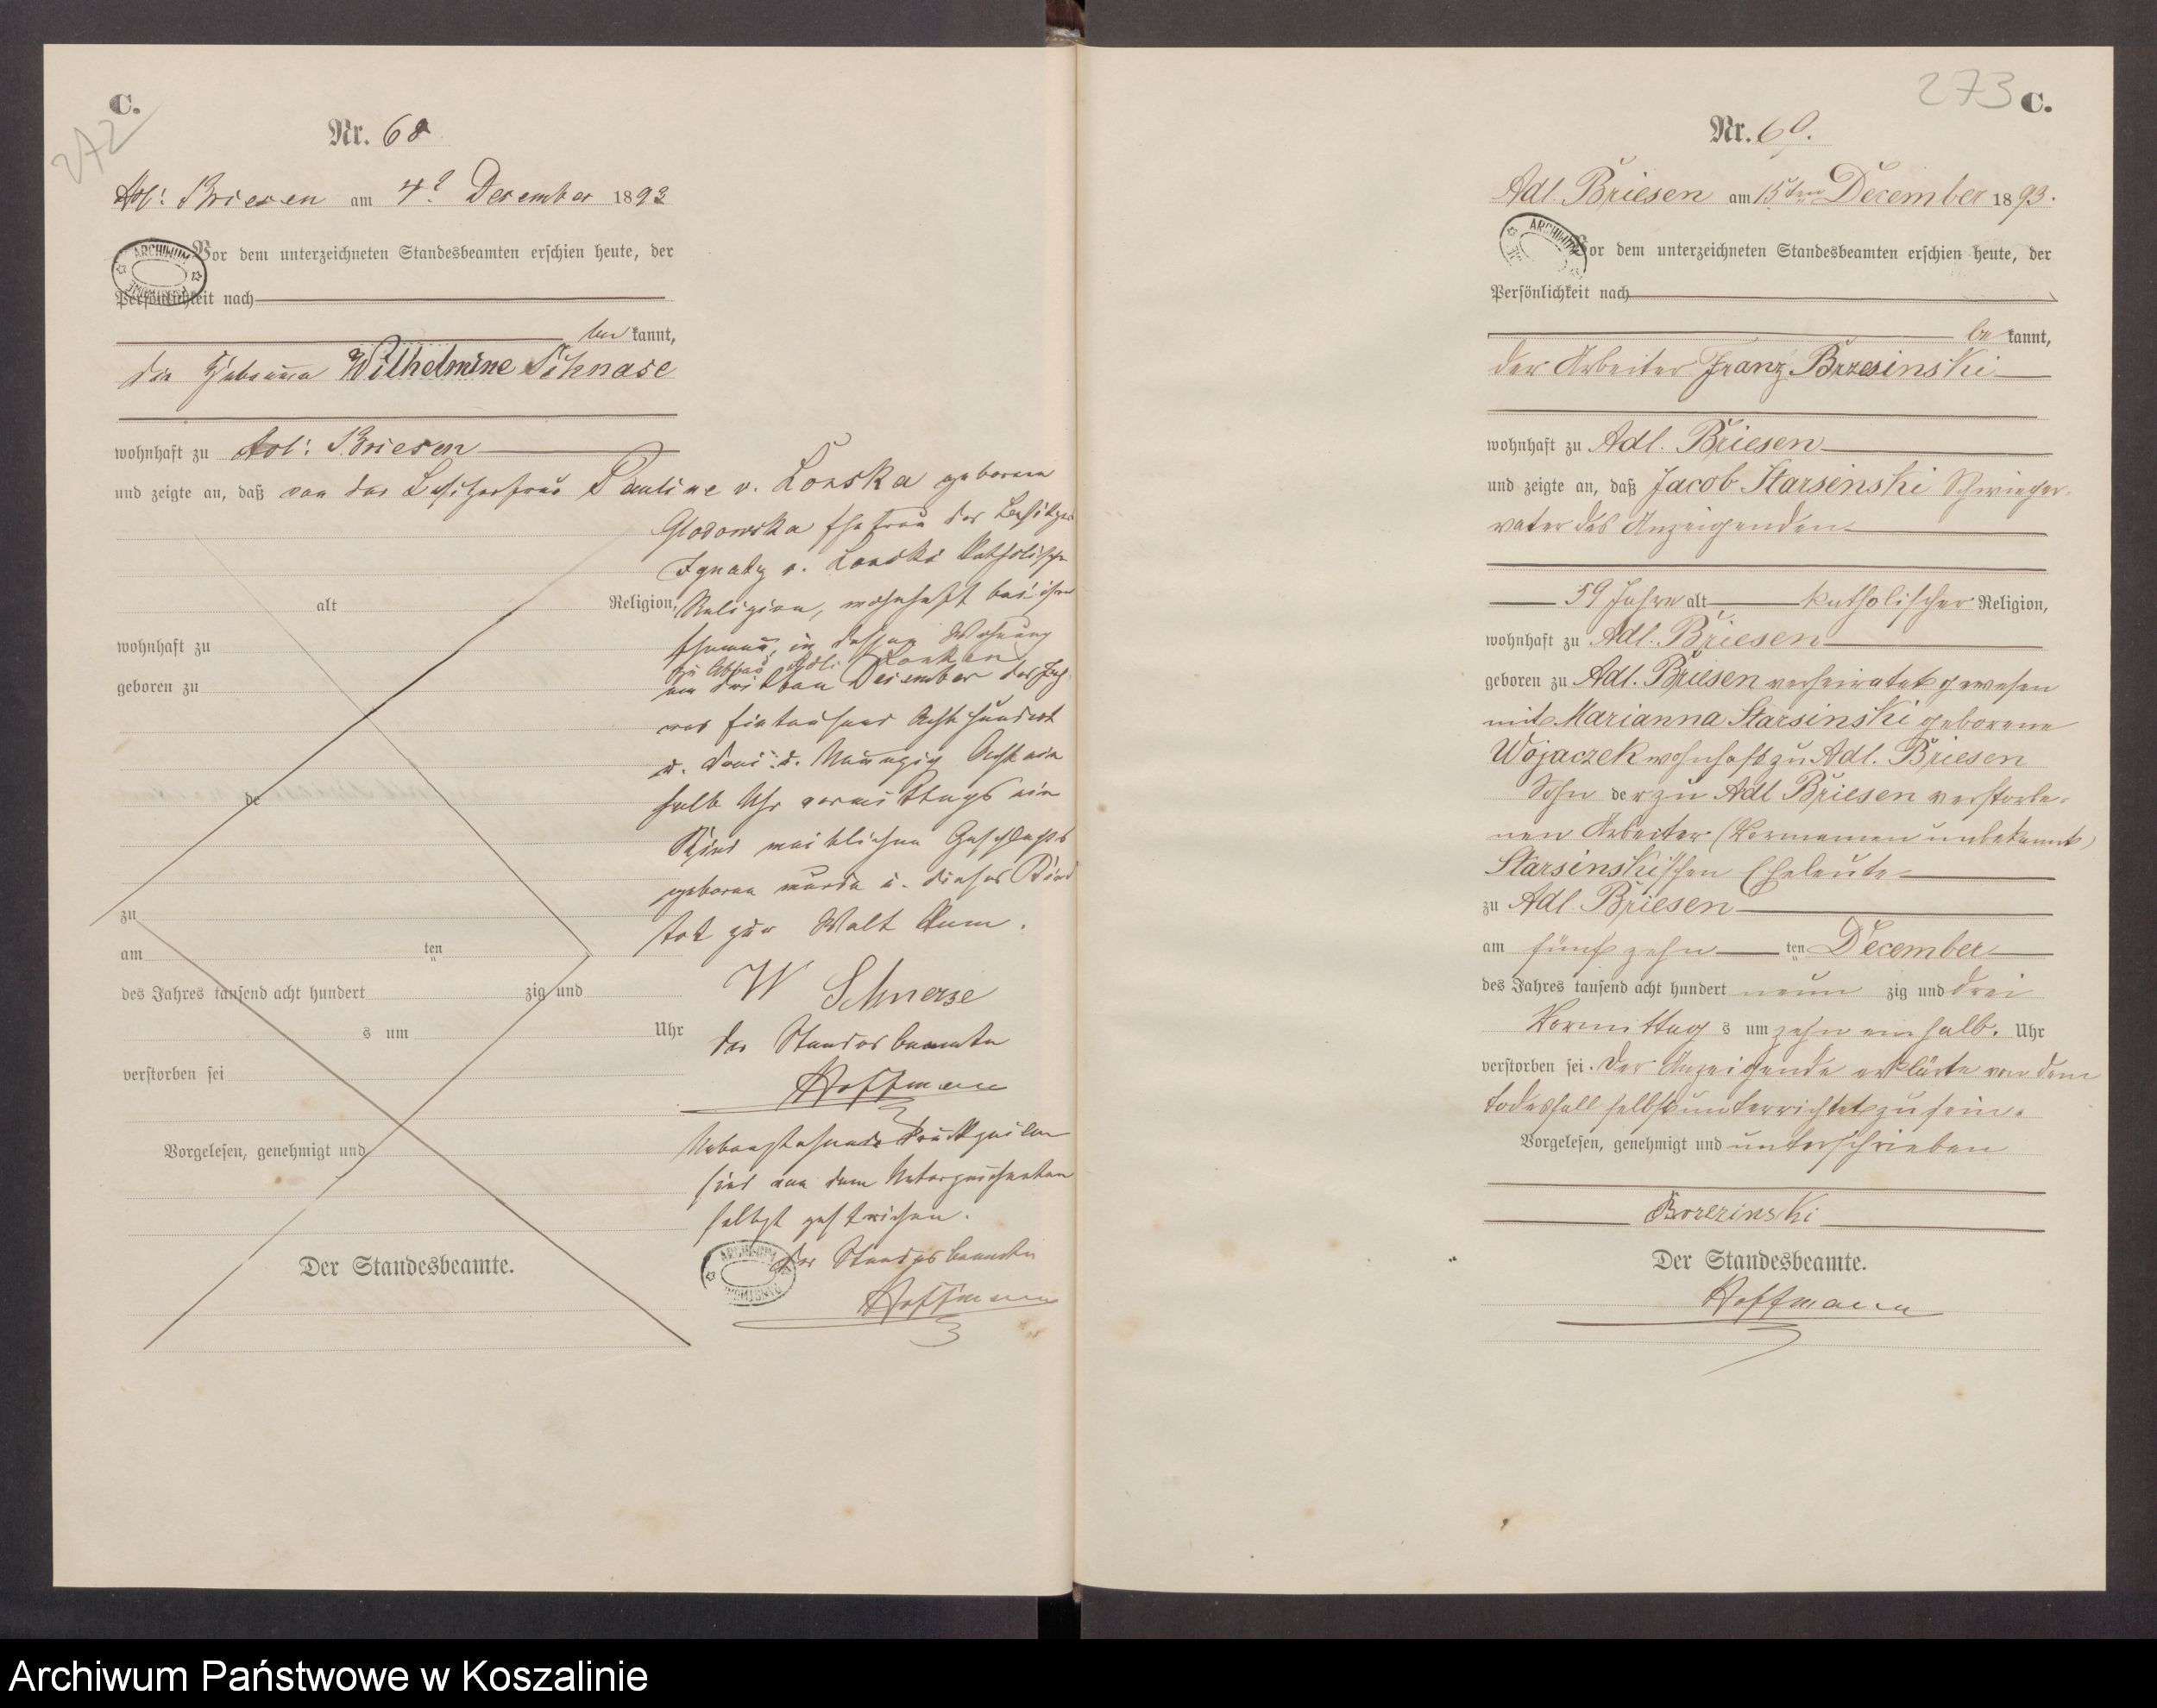 C.
272
Nr. 68
Adl: Briesen am 4t December 1893
Vor dem unterzeichneten Standesbeamten erschien heute, der
ARCHIWUM
Persönlichkeit nach
be kannt,
die Hebamme Wilhelmine Schnase
wohnhaft zu Adl: Briesen
und zeigte an, daß von der Besitzerfrau Pauline v. Lonska geborene
Glodowska Ehefrau des Besitzers
Ignatz v. Lonski Katholischer
alt Religion, Religion, wohnhaft bei ihrem
Ehemann, in dessen Wohnung
wohnhaft zu
zu Abbau Adl: Lonken
geboren zu
am dritten Dezember des Jah
res Eintausend Acht hundert
u. drei u. Neunzig Acht ein
de
halb Uhr vormittags ein
Kind weiblichen Geschlechts
geboren wurde u. dieses Kind
zu
tot zur Welt kam.
am ten
W Schnerse
des Jahres tausend acht hundert zig und
s um Uhr
der Standesbeamte
verstorben sei
Hoffmann
Nebenstehende Druckzeilen
Vorgelesen, genehmigt und
sind von dem Unterzeichneten
selbst gestrichen.
ARCHIWUM
Der Standesbeamte.
der Standesbeamte
Hoffmann
273 C.
Nr. 69.
Adl. Briesen am 15ten December 1893.
Vor dem unterzeichneten Standesbeamten erschien heute, der
ARCHIWUM
Persönlichkeit nach
be kannt,
der Arbeiter Franz Brzesinski
wohnhaft zu Adl. Briesen
und zeigte an, daß Jacob Starsinski Schwieger-
vater des Anzeigenden
59 Jahre alt, katholischer Religion,
wohnhaft zu Adl. Briesen
geboren zu Adl. Briesen verheiratet gewesen
mit Marianna Starsinski geborene
Wojaczek wohnhaft zu Adl. Briesen
Sohn der zu Adl Briesen verstorbe-
nen Arbeiter (Vornamen unbekannt)
Starsinski'schen Eheleute
zu Adl. Briesen
am fünfzehn ten December
des Jahres tausend acht hundert neun zig und drei
Vormittag s um zehn ein halb. Uhr
verstorben sei. Der Anzeigende erklärte von dem
Todesfall selbst unterrichtet zu sein.
Vorgelesen, genehmigt und unterschrieben
Brzezinski
Der Standesbeamte.
Hoffmann
Archiwum Państwowe w Koszalinie